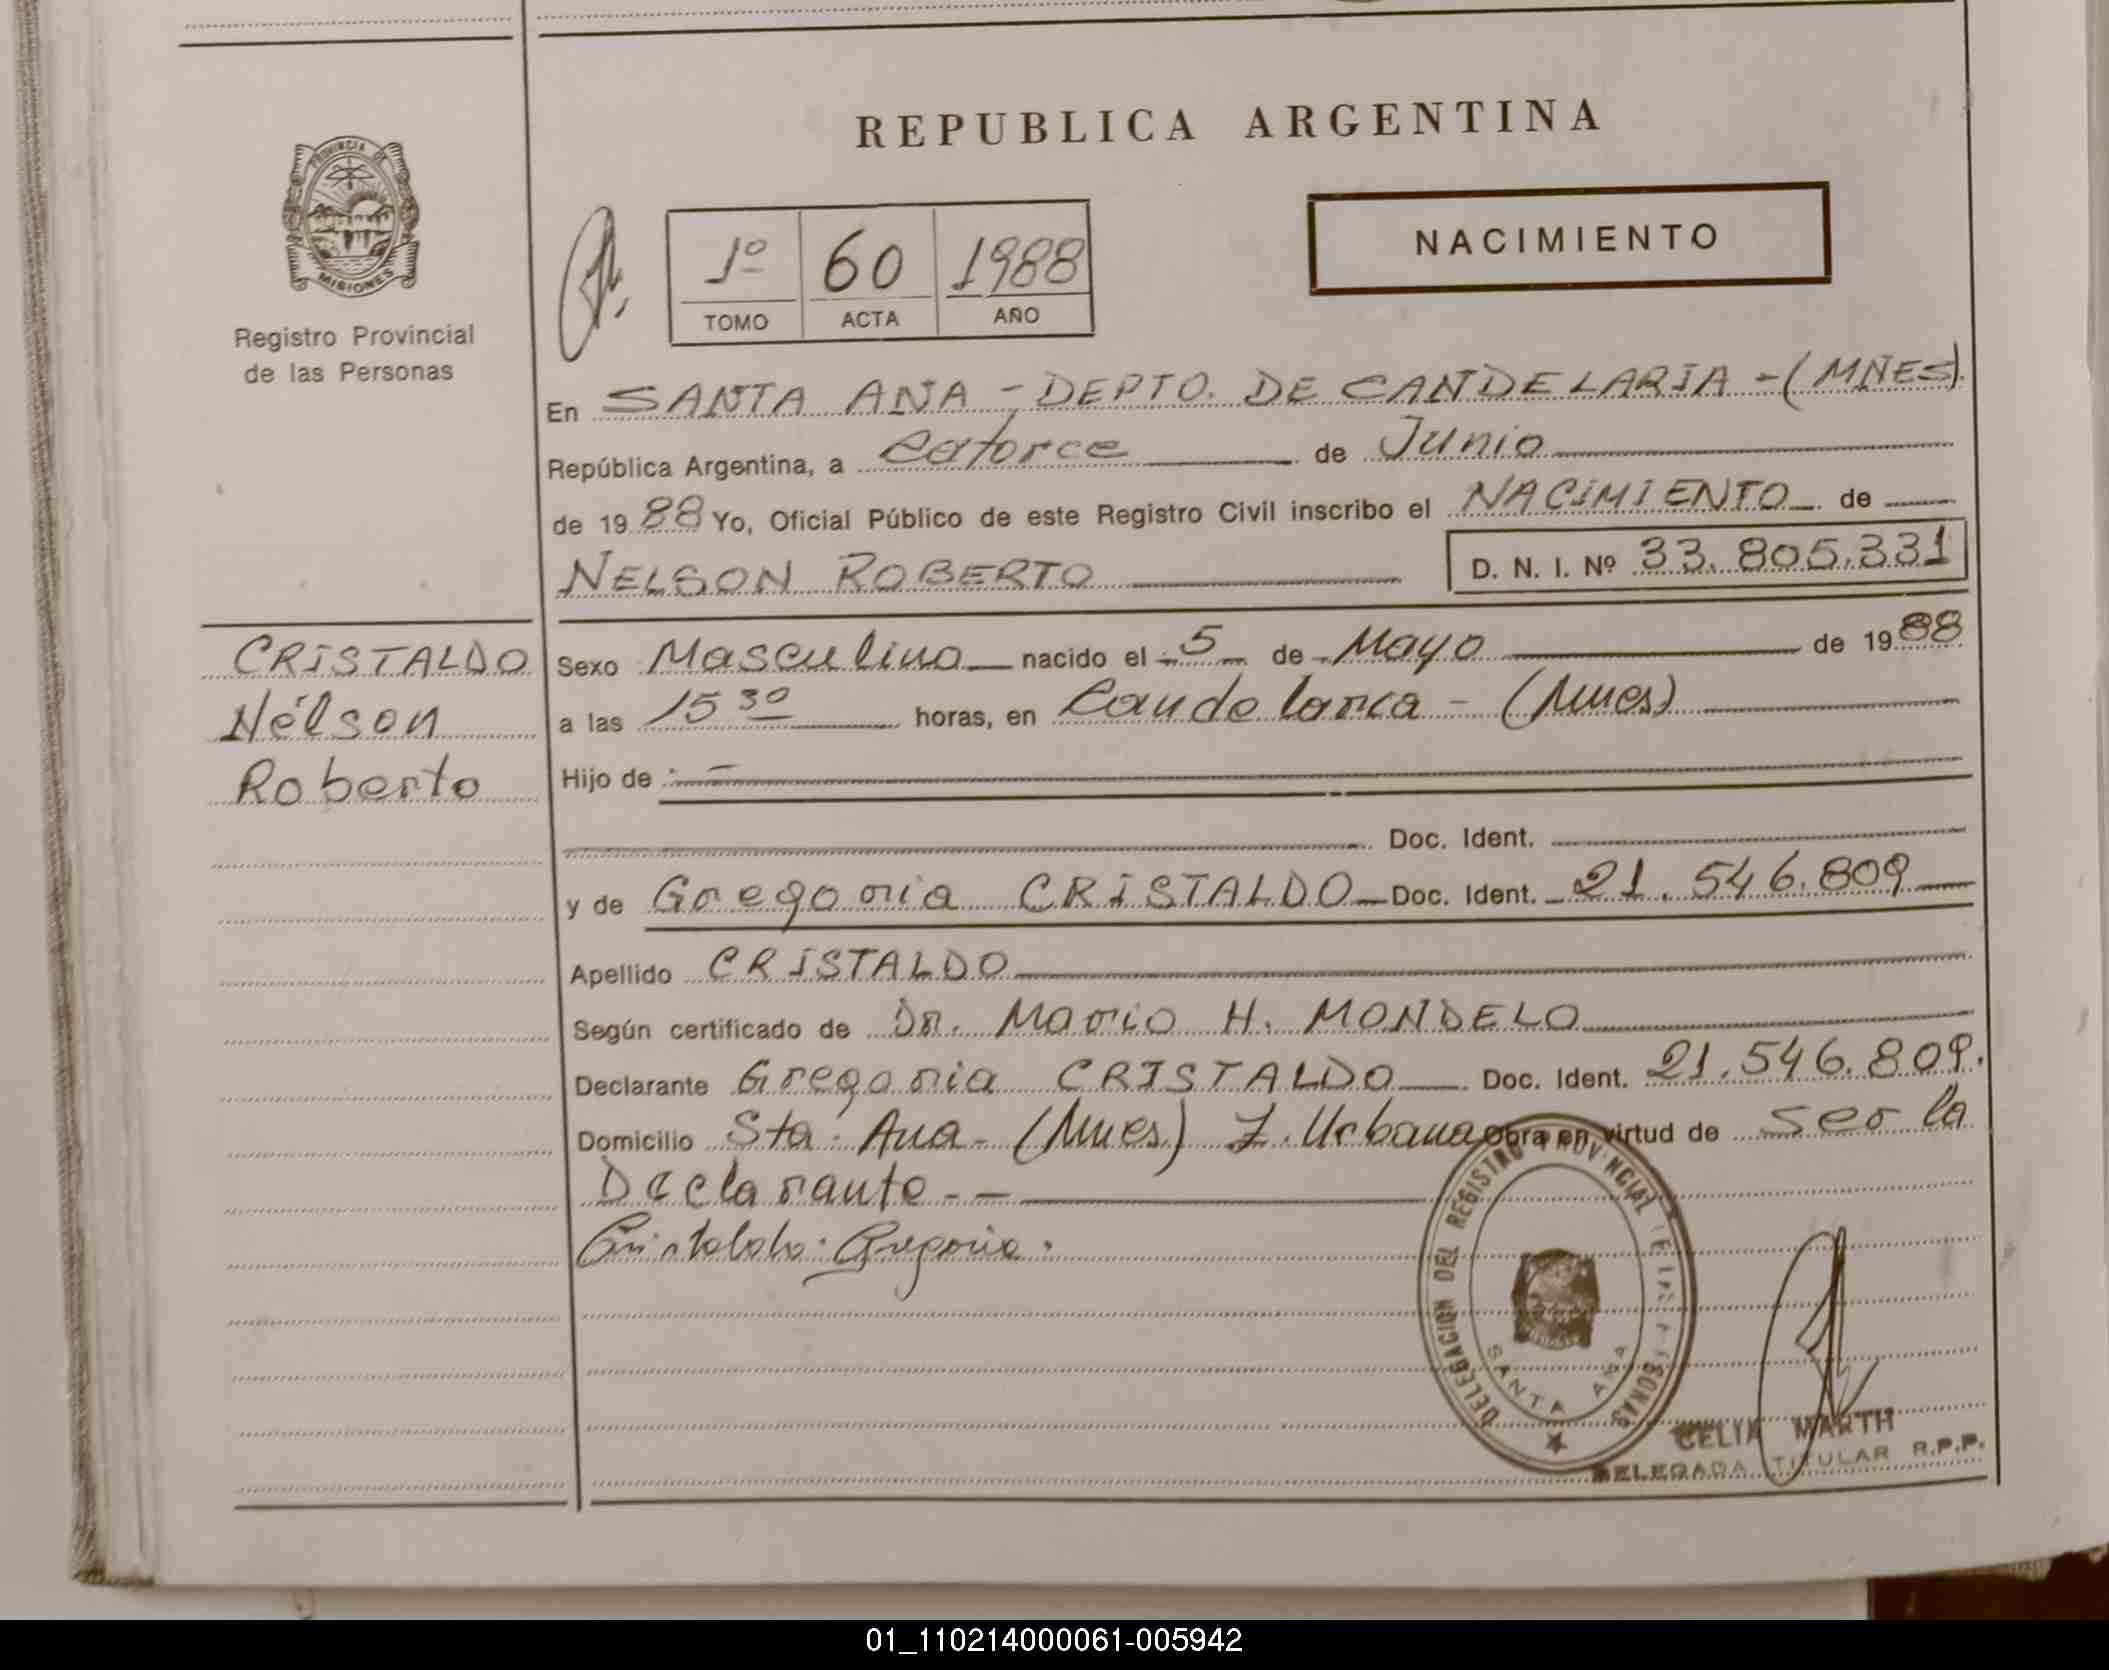 REPUBLICA ARGENTINA
PROVINCIA DE
MISIONES
Registro Provincial
de las Personas
1º 60 1988
TOMO ACTA AÑO
NACIMIENTO
En SANTA ANA - DEPTO. DE CANDELARIA - (MNES).
República Argentina, a catorce de Junio
de 1988 Yo, Oficial Público de este Registro Civil inscribo el NACIMIENTO de
NELSON ROBERTO D. N. I. Nº 33.805.331
CRISTALDO
Nélson
Roberto
Sexo Masculino nacido el 5 de Mayo de 1988
a las 15 30 horas, en Candelaria - (Mnes)
Hijo de
Doc. Ident.
y de Gregoria CRISTALDO Doc. Ident. 21.546.809
Apellido CRISTALDO
Según certificado de Dr. Mario H. MONDELO
Declarante Gregoria CRISTALDO Doc. Ident. 21.546.809.
Domicilio Sta. Ana - (Mnes) Z. Urbana Obra en virtud de ser la
Declarante - -
Cristaldo Gregoria.
DELEGACION DEL REGISTRO PROVINCIAL DE LAS PERSONAS
SANTA ANA
CELIA MARTH
DELEGADA TITULAR R.P.P.
01_110214000061-005942